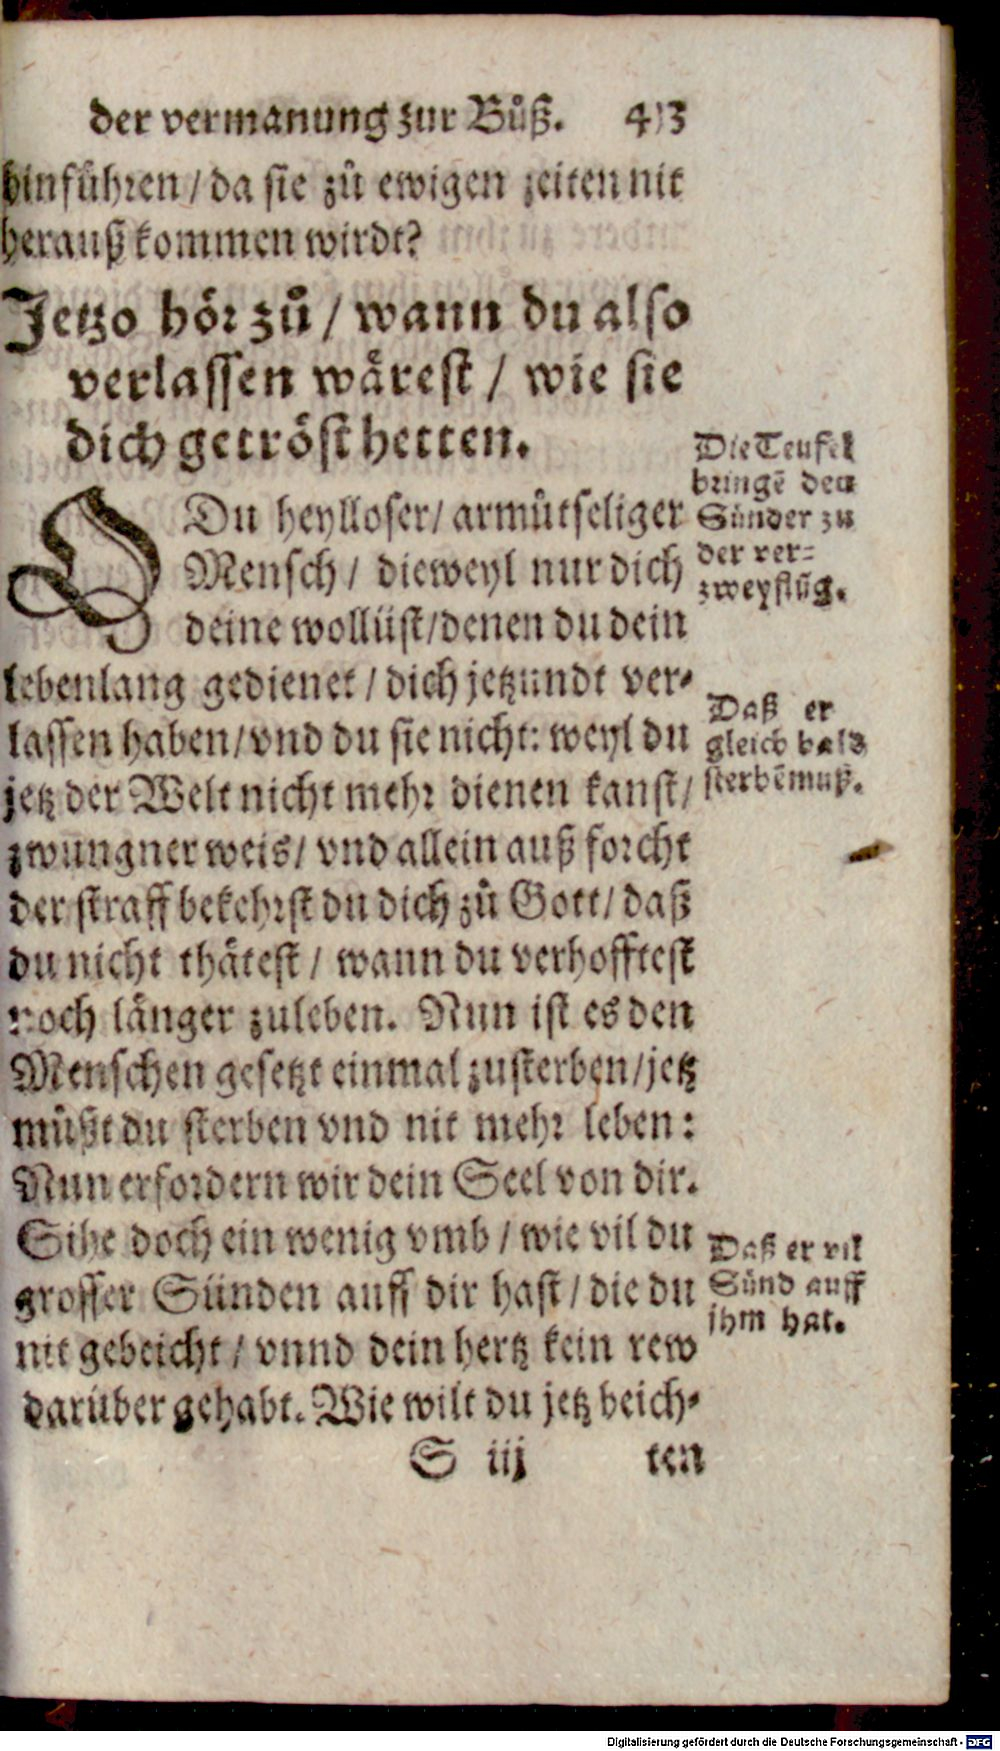 der vermanung zur Bůß. 413
hinführen / da sie zů ewigen zeiten nit
herauß kommen wirdt?
Jetzo hör zů / wann du also
verlassen wärest / wie sie
dich getröst hetten.
O Du heylloser / armůtseliger
Mensch / dieweyl nur dich
deine wollüst / denen du dein
lebenlang gedienet / dich jetzundt ver-
lassen haben / vnd du sie nicht: weyl du
jetz der Welt nicht mehr dienen kanst /
zwungner weis / vnd allein auß forcht
der straff bekehrst du dich zů Gott / daß
du nicht thätest / wann du verhofftest
noch länger zuleben. Nun ist es den
Menschen gesetzt einmal zusterben / jetz
můßt du sterben vnd nit mehr leben:
Nun erfordern wir dein Seel von dir.
Sihe doch ein wenig vmb / wie vil du
grosser Sünden auff dir hast / die du
nit gebeicht / vnnd dein hertz kein rew
darüber gehabt. Wie wilt du jetz beich-
S iij ten
Die Teufel
bringē den
Sünder zu
der ver=
zweyflūg.
Daß er
gleich bald
sterbē muß.
Daß er vil
Sünd auff
ihm hat.
Digitalisierung gefördert durch die Deutsche Forschungsgemeinschaft - DFG